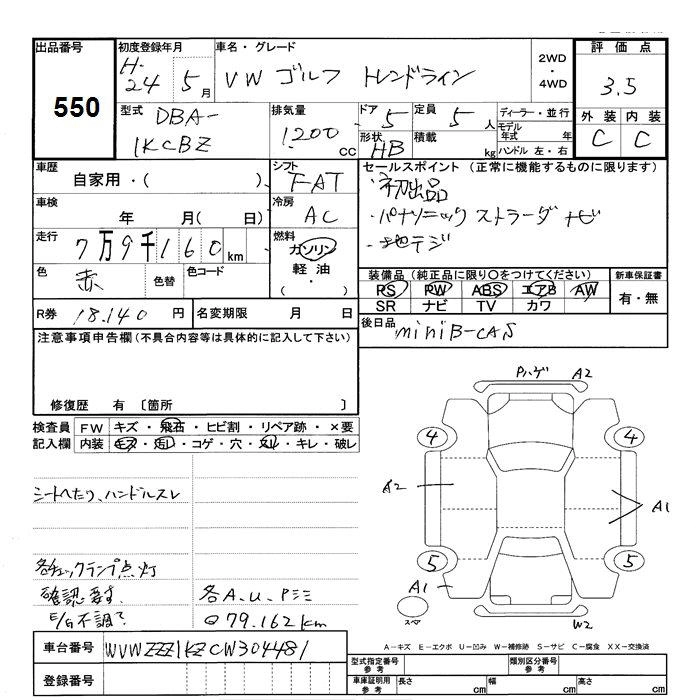 出品番号 初度登録年月 車名・グレード 2WD・4WD 評価点
550 H-24年 5月 VW ゴルフ トレンドライン 3.5
型式 DBA-1KCBZ 排気量 1200 CC ドア 5 定員 5人 ディーラー・並行 外装 内装
形状 HB 積載 kg モデル年式 年 ハンドル 左・右 C C
車歴 自家用・( ) シフト FAT セールスポイント (正常に機能するものに限ります)
・初出品
車検 年 月( 日) 冷房 AC ・パナソニック ストラーダ ナビ
走行 7万9千160km 燃料 ガソリン 軽油 ( ・ ) ・地デジ
色 赤 色替 色コード 装備品 (純正品に限り○をつけてください) 新車保証書
PS PW ABS エアB AW 有・無
SR ナビ TV カワ
R券 18.140 円 名変期限 月 日 後日品 miniB-CAS
注意事項申告欄 (不具合内容等は具体的に記入して下さい)
修復歴 有 〔箇所 〕
検査員 FW キズ・飛石・ヒビ割・リペア跡・×要
記入欄 内装 キズ・汚れ・コゲ・穴・スレ・キレ・破レ
Pハゲ A2
4 4
シートヘたり、ハンドルスレ
A2 A1
5 5
各チェックランプ点灯
確認要す。 各A.U.Pミミ A1
E/G不調? ⊙79.162km スペア W2
車台番号 WVWZZZ1KZCW304481
A−キズ E−エクボ U−凹み W−補修跡 S−サビ C−腐食 XX−交換済
登録番号 型式指定番号 参考 類別区分番号 参考
車庫証明用 参考 長さ cm 幅 cm 高さ cm